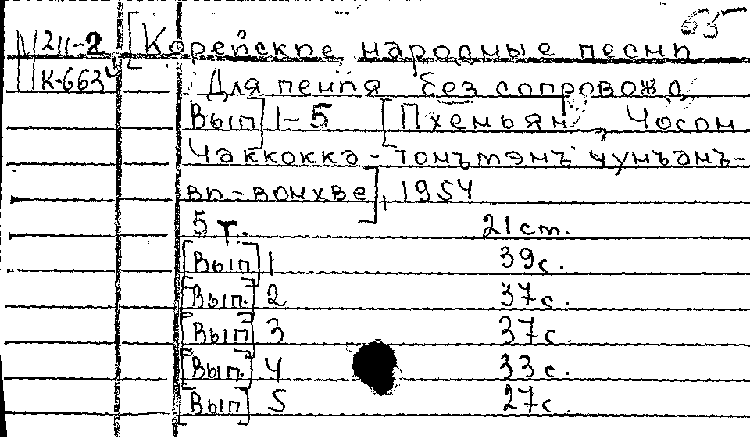 65
М 211-2 [Корейские народные песни
К-663ч Для пения без сопровожд
[Вып] 1-5 [Пхеньян, Чосон
Чаккокка-тонъмэнъ чунъанъ-
ви-вонхве], 1954
5 т. 21 ст.
[Вып] 1 39 с.
[Вып.] 2 37 с.
[Вып] 3 37 с
[Вып.] 4 33 с.
[Вып] 5 27 с.